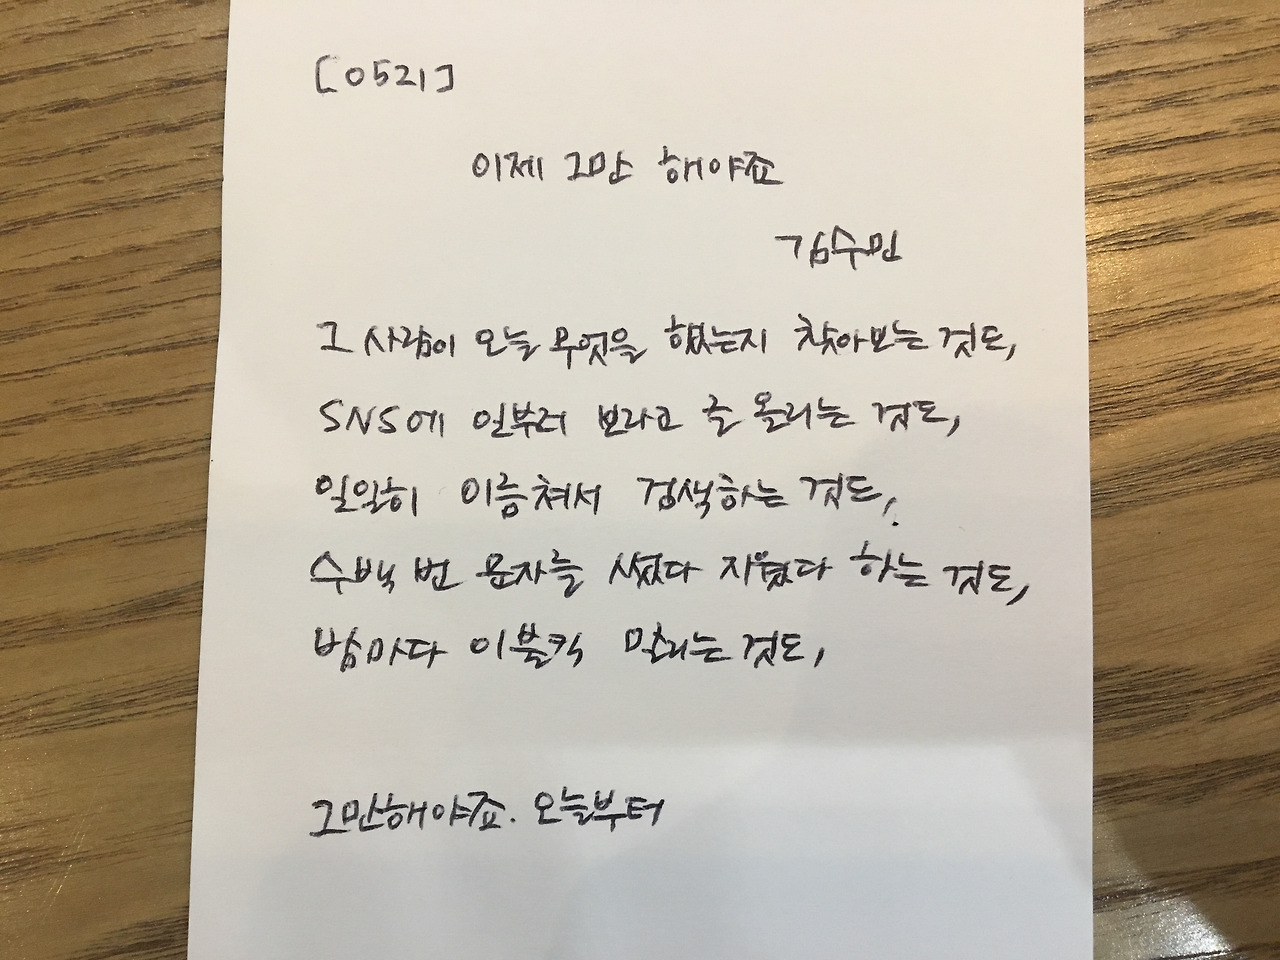 [0521]
이제 그만 해야죠
김수민
그 사람이 오늘 무엇을 했는지 찾아보는 것도,
SNS에 일부러 보라고 글 올리는 것도,
일일히 이름쳐서 검색하는 것도,
수백 번 문자를 썼다 지웠다 하는 것도,
밤마다 이불킥 날리는 것도,
그만해야죠. 오늘부터